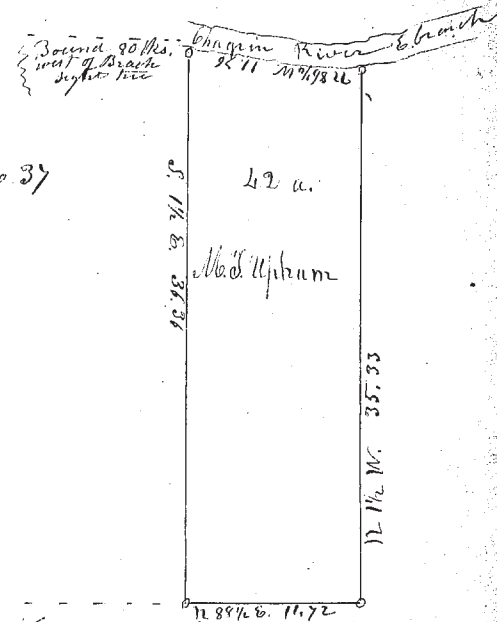 Bound 80 lks.
west of Beach
sight tree
Chagrin River E. branch
N 86½ W 11.75
o 37
42 a.
M.S. Upham
S. 1½ E. 36.36
N 1½ W. 35.33
N 89½ E. 11,72